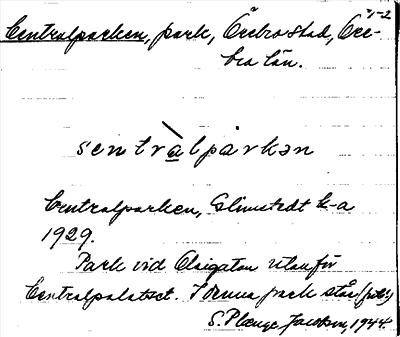 71-2
Centralparken, park, Örebro stad, Öre-
bro län.
sentràlpàrkən
Centralparken, Elmstedt k-a
1929.
Park vid Olaigatan utanför
Centralpalatset. I denna park står
S. Plænge Jacobson, 1944.